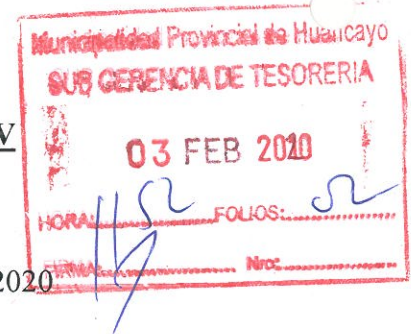 Municipalidad Provincial de Huancayo
SUB GERENCIA DE TESORERIA
V
03 FEB 2020
HORA: FOLIOS:
2020
FIRMA: Nro: